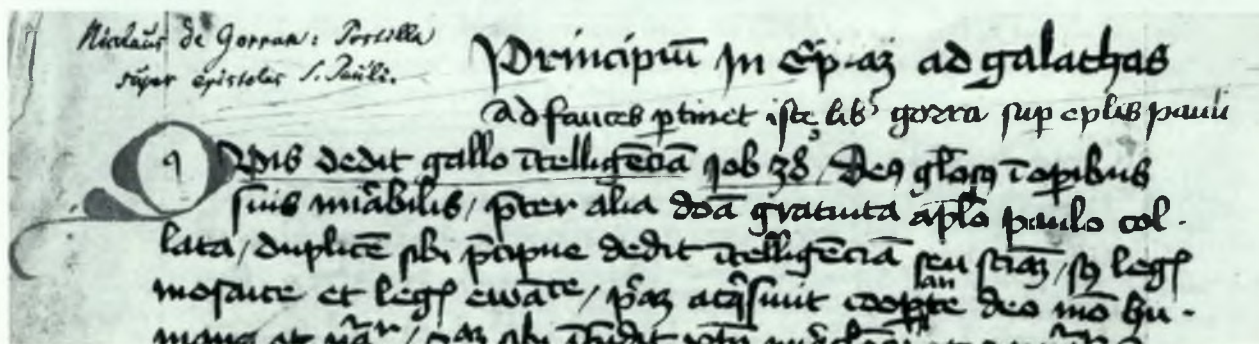 Nicolaus de Gorran: Postilla
super epistolas S. Pauli.
Principiū In Ep̄.aꝫ ad galathas
ad fauces ꝑtinet iste lib' gorra sup ep̄lis pauli
Qvis dedit gallo ītelligēciā Job 38 / Deꝰ gl̄osꝰ ī oꝑibus
suis mīabilis / p̄ter alia dōa gratuita ap̄lo paulo col-
lata / duplicē sibi p̄cipue dedit ītelligēciā seu sciāꝫ / sꝫ legꝭ
mosaice et legꝭ ewāᵗᵉ / p̄aꝫ acq̄siuit cooꝑāte deo mō hu-